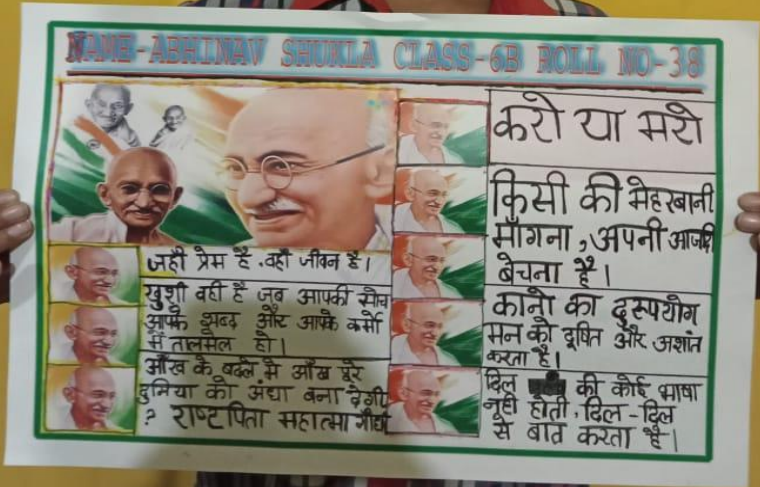 NAME-ABHINAV SHUKLA CLASS-6B ROLL NO-38
जहाँ प्रेम है, वही जीवन है।
खुशी वही है जब आपकी सोच
आपके शब्द और आपके कर्मो
में तालमेल हो।
आँख के बदले मे आँख पूरे
दुनिया को अंधा बना देगी
? राष्टपिता महात्मा गाँधी
करो या मरो
किसी की मेहरबानी
माँगना, अपनी आजादी
बेचना है।
कानो का दुरूपयोग
मन को दूषित और अशांत
करता है।
दिल की कोई भाषा
नही होती, दिल-दिल
से बात करता है।